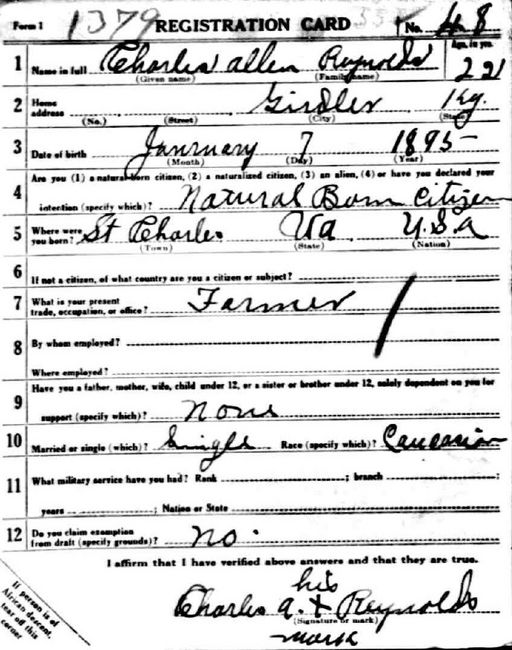 Form 1 1379 REGISTRATION CARD No. 48
1 Name in full Charles allen Reynolds Age, in yrs.
(Given name) (Family name) 22
2 Home address Girdler Ky.
(No.) (Street) (City) (State)
3 Date of birth Janruary 7 1895
(Month) (Day) (Year)
Are you (1) a natural-born citizen, (2) a naturalized citizen, (3) an alien, (4) or have you declared your
4 intention (specify which)? Natural Born Citizen
5 Where were you born? St Charles Va U.S.A
(Town) (State) (Nation)
6 If not a citizen, of what country are you a citizen or subject?
7 What is your present trade, occupation, or office? Farmer
8 By whom employed?
Where employed?
Have you a father, mother, wife, child under 12, or a sister or brother under 12, solely dependent on you for
9 support (specify which)? None
10 Married or single (which)? Single Race (specify which)? Caucasian
11 What military service have you had? Rank ; branch ;
years ; Nation or State
12 Do you claim exemption from draft (specify grounds)? No.
I affirm that I have verified above answers and that they are true.
his
Charles a. X Reynolds
(Signature or mark)
mark
If person is of
African descent,
tear off this
corner.